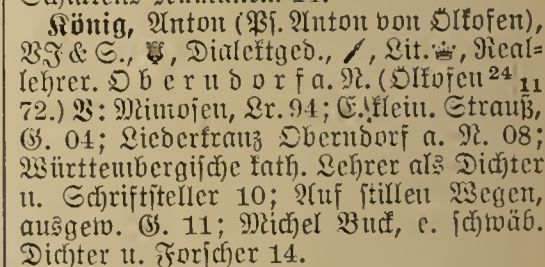 König, Anton (Ps. Anton von Ölkofen),
VJ & G., Dialektged., Lit. Real=
lehrer. Oberndorf a. N. (Ölkofen 24 11
72.) V: Mimosen, Lr. 94; E. klein. Strauß,
G. 04; Liederkranz Oberndorf a. N. 08;
Württembergische kath. Lehrer als Dichter
u. Schriftsteller 10; Auf stillen Wegen,
ausgew. G. 11; Michel Buck, e. schwäb.
Dichter u. Forscher 14.